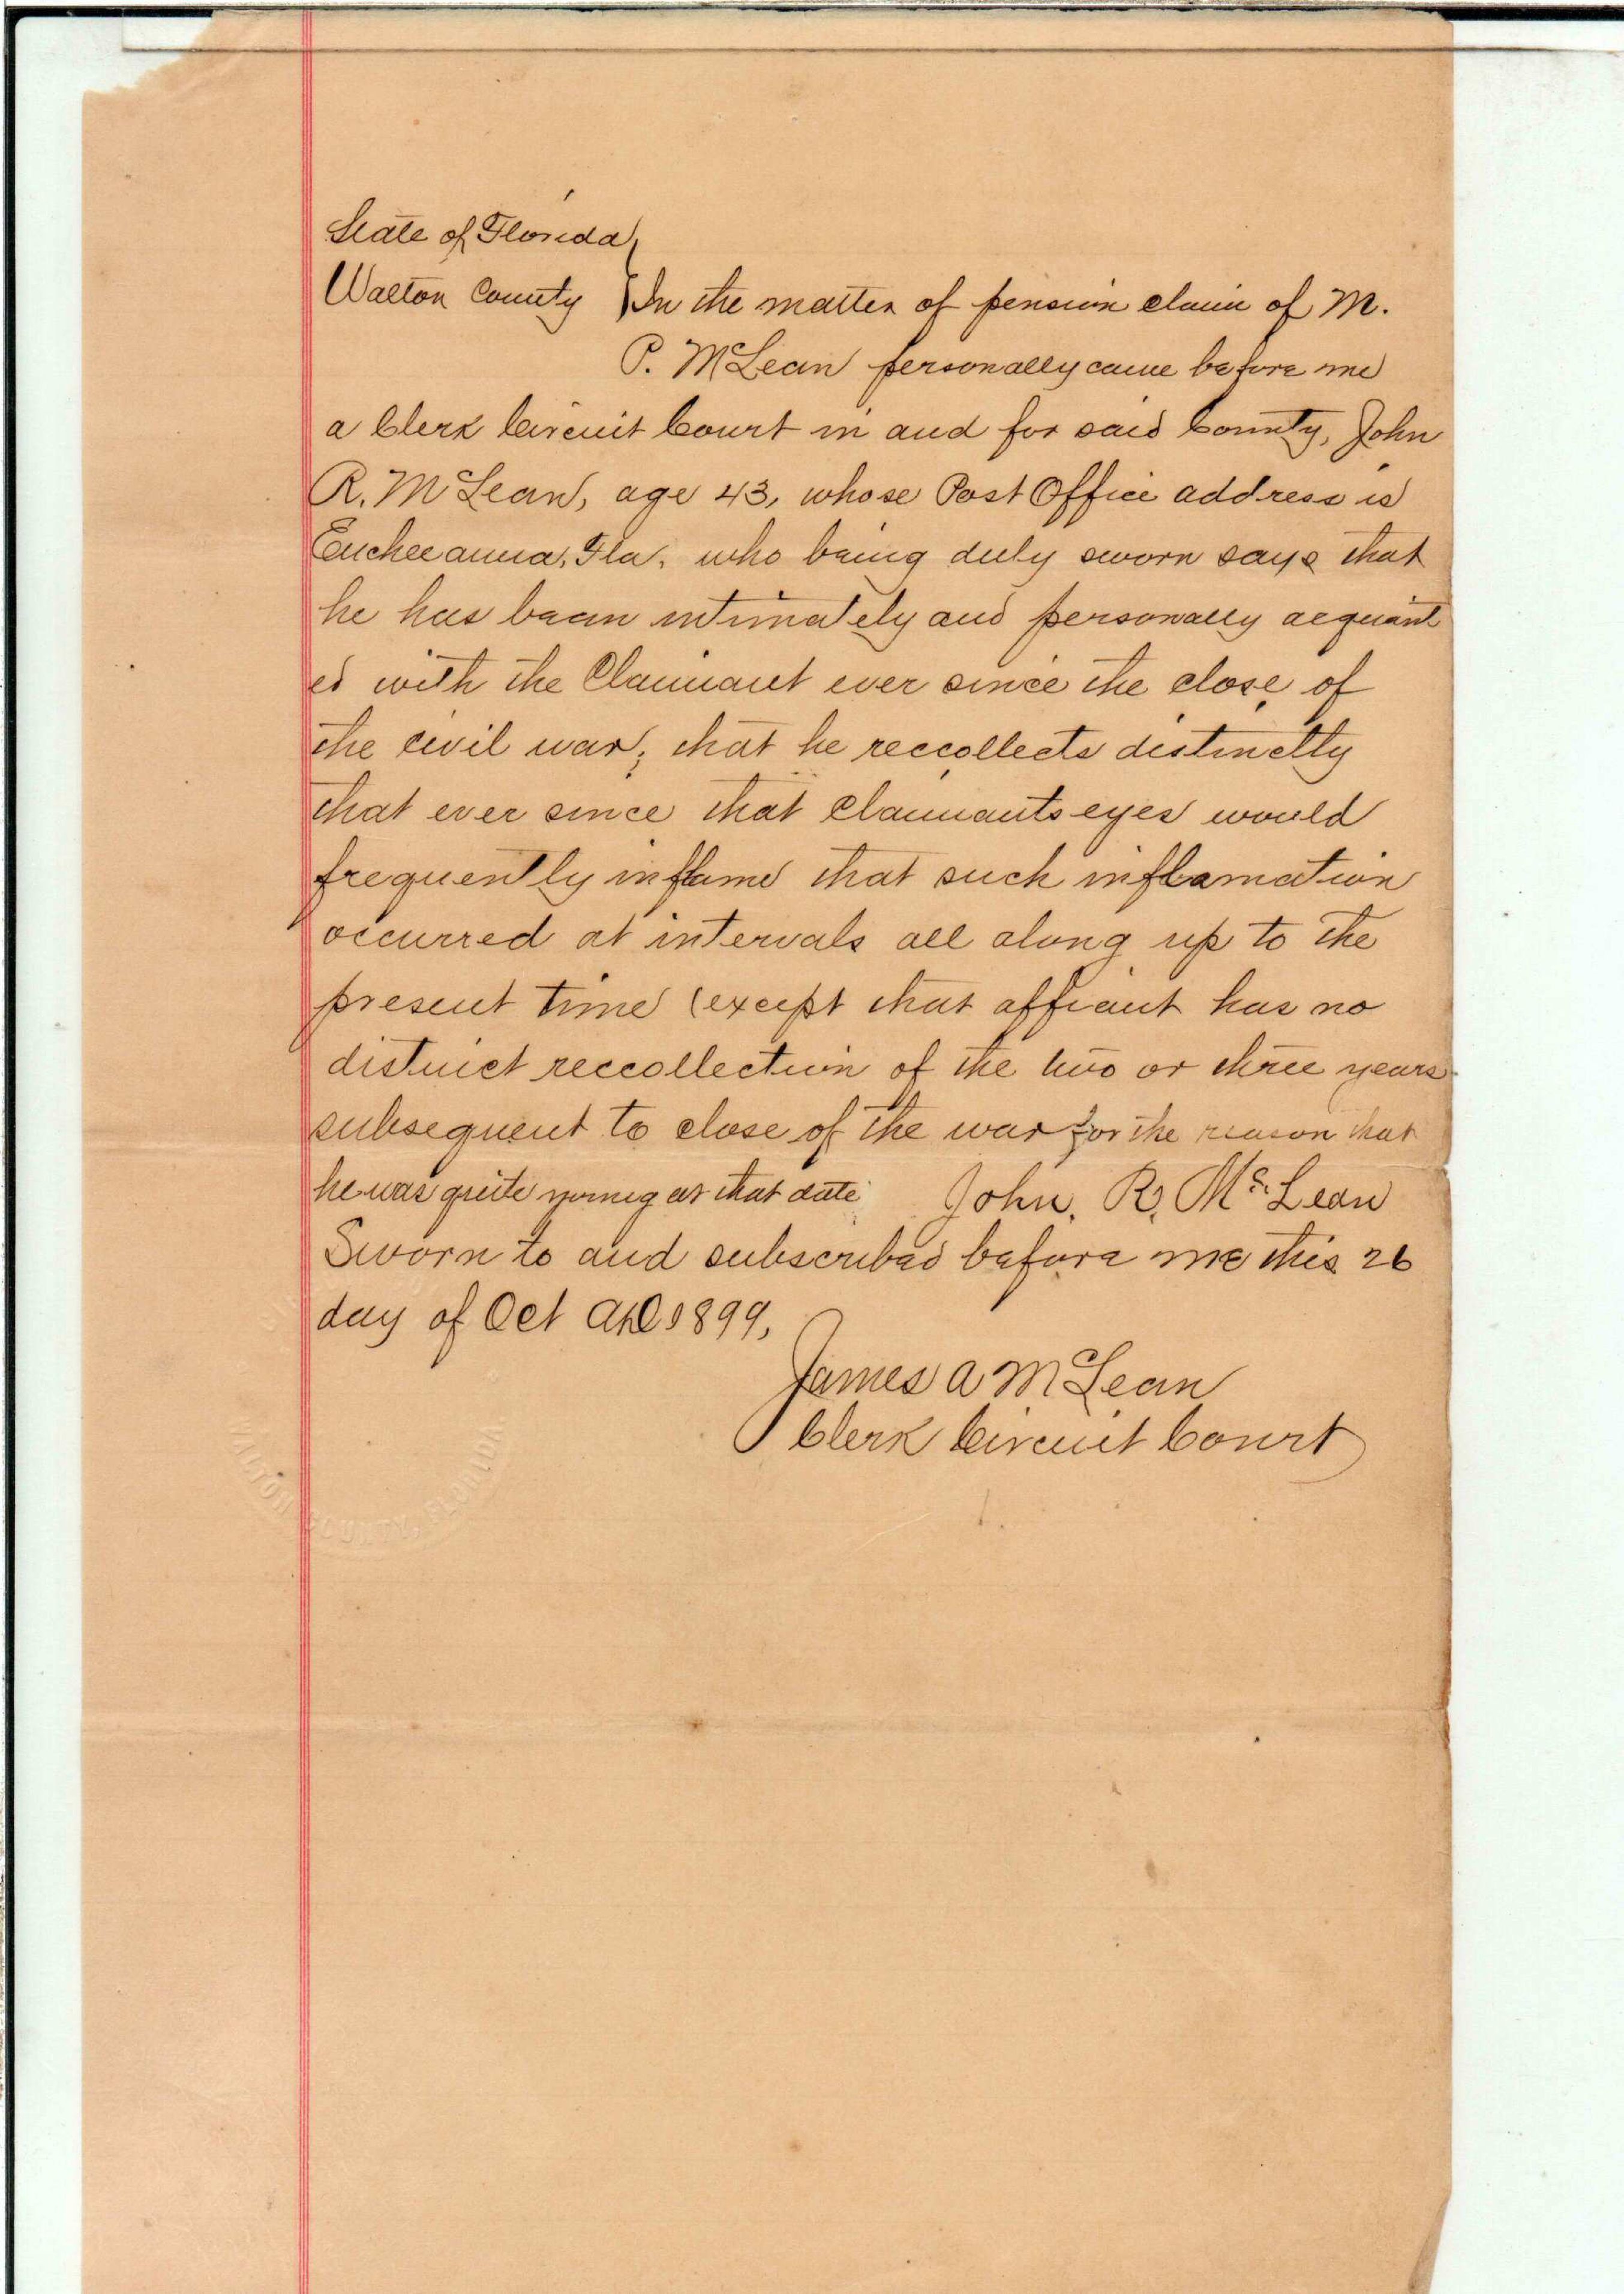 State of Florida }
Walton County } In the matter of pension claim of M.
P. McLean personally came before me
a Clerk Circuit Court in and for said County, John
R. McLean, age 43, whose Post Office address is
Eucheeanna, Fla. who being duly sworn says that
he has been intimately and personally acquaint
ed with the Claimant ever since the close of
the civil war; that he reccollects distinctly
that ever since that claimants eyes would
frequently inflame that such inflamation
occurred at intervals all along up to the
present time (except that affiant has no
distinct reccollection of the two or three years
subsequent to close of the war for the reason that
he was quite young at that date John. R. McLean
Sworn to and subscribed before me this 26
day of Oct AD 1899,
James A McLean
Clerk Circuit Court
WALTON COUNTY, FLORIDA